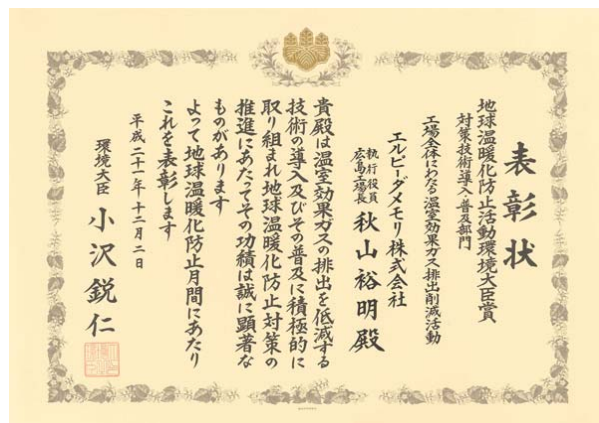 表彰状
地球温暖化防止活動環境大臣賞
対策技術導入・普及部門
工場全体にわたる温室効果ガス排出削減活動
エルピーダメモリ株式会社
執行役員
広島工場長
秋山裕明殿
貴殿は温室効果ガスの排出を低減する
技術の導入及びその普及に積極的に
取り組まれ地球温暖化防止対策の
推進にあたってその功績は誠に顕著な
ものがあります
よって地球温暖化防止月間にあたり
これを表彰します
平成二十一年十二月二日
環境大臣 小沢鋭仁